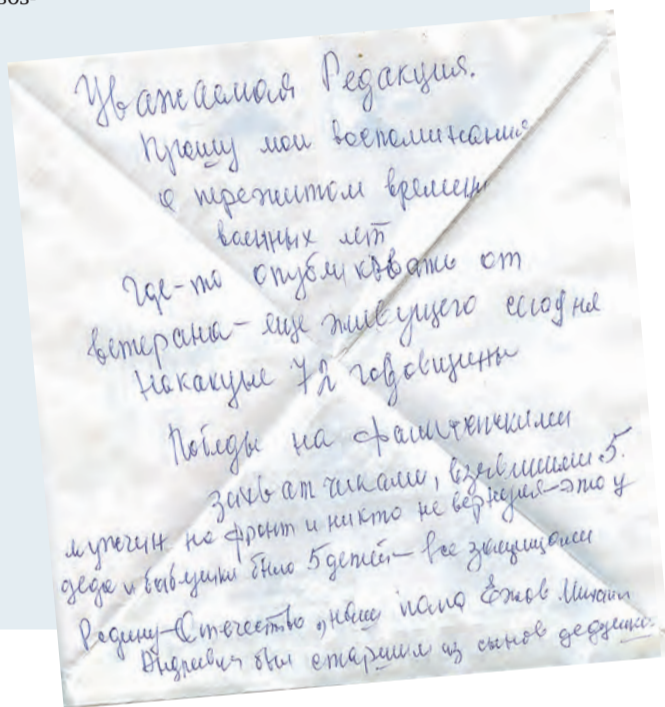 Уважаемая Редакция.
Прошу мои воспоминания
о пережитом времени
военных лет
Где-то опубликовать от
ветерана - еще живущего сегодня
Накануне 72 годовщины
Победы на фашисткими
захватчиками, взявшими 5.
мужчин на фронт и никто не вернулся - это у
деда и бабушки было 5 детей - все защищали
Родину-Отечество, наш папа Ежов Михаил
Андреевич был старшим из сынов дедушки.